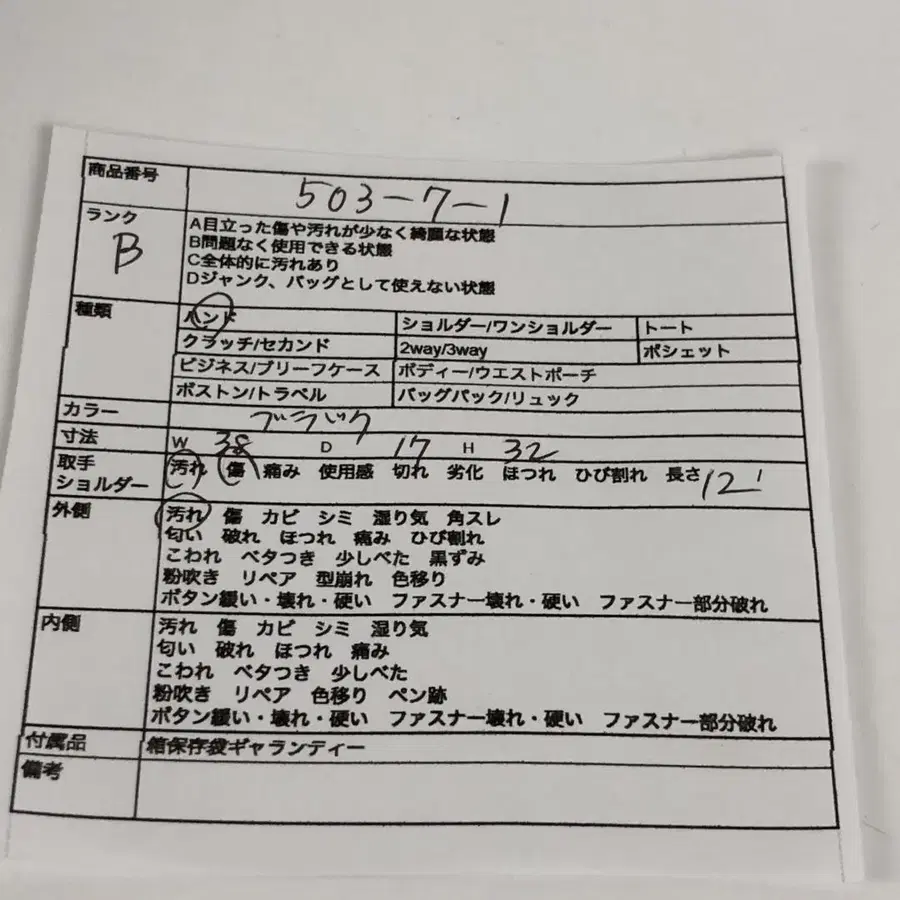 商品番号 503-7-1
ランク B
A目立った傷や汚れが少なく綺麗な状態
B問題なく使用できる状態
C全体的に汚れあり
Dジャンク、バッグとして使えない状態
種類 ハンド ショルダー/ワンショルダー トート
クラッチ/セカンド 2way/3way ポシェット
ビジネス/ブリーフケース ボディー/ウエストポーチ
ボストン/トラベル バッグパック/リュック
カラー ブラック
寸法 W 38 D 17 H 32
取手 汚れ 傷 痛み 使用感 切れ 劣化 ほつれ ひび割れ 長さ 12
ショルダー
外側 汚れ 傷 カビ シミ 湿り気 角スレ
匂い 破れ ほつれ 痛み ひび割れ
こわれ ベタつき 少しべた 黒ずみ
粉吹き リペア 型崩れ 色移り
ボタン緩い・壊れ・硬い ファスナー壊れ・硬い ファスナー部分破れ
内側 汚れ 傷 カビ シミ 湿り気
匂い 破れ ほつれ 痛み
こわれ ベタつき 少しべた
粉吹き リペア 色移り ペン跡
ボタン緩い・壊れ・硬い ファスナー壊れ・硬い ファスナー部分破れ
付属品 箱保存袋ギャランティー
備考